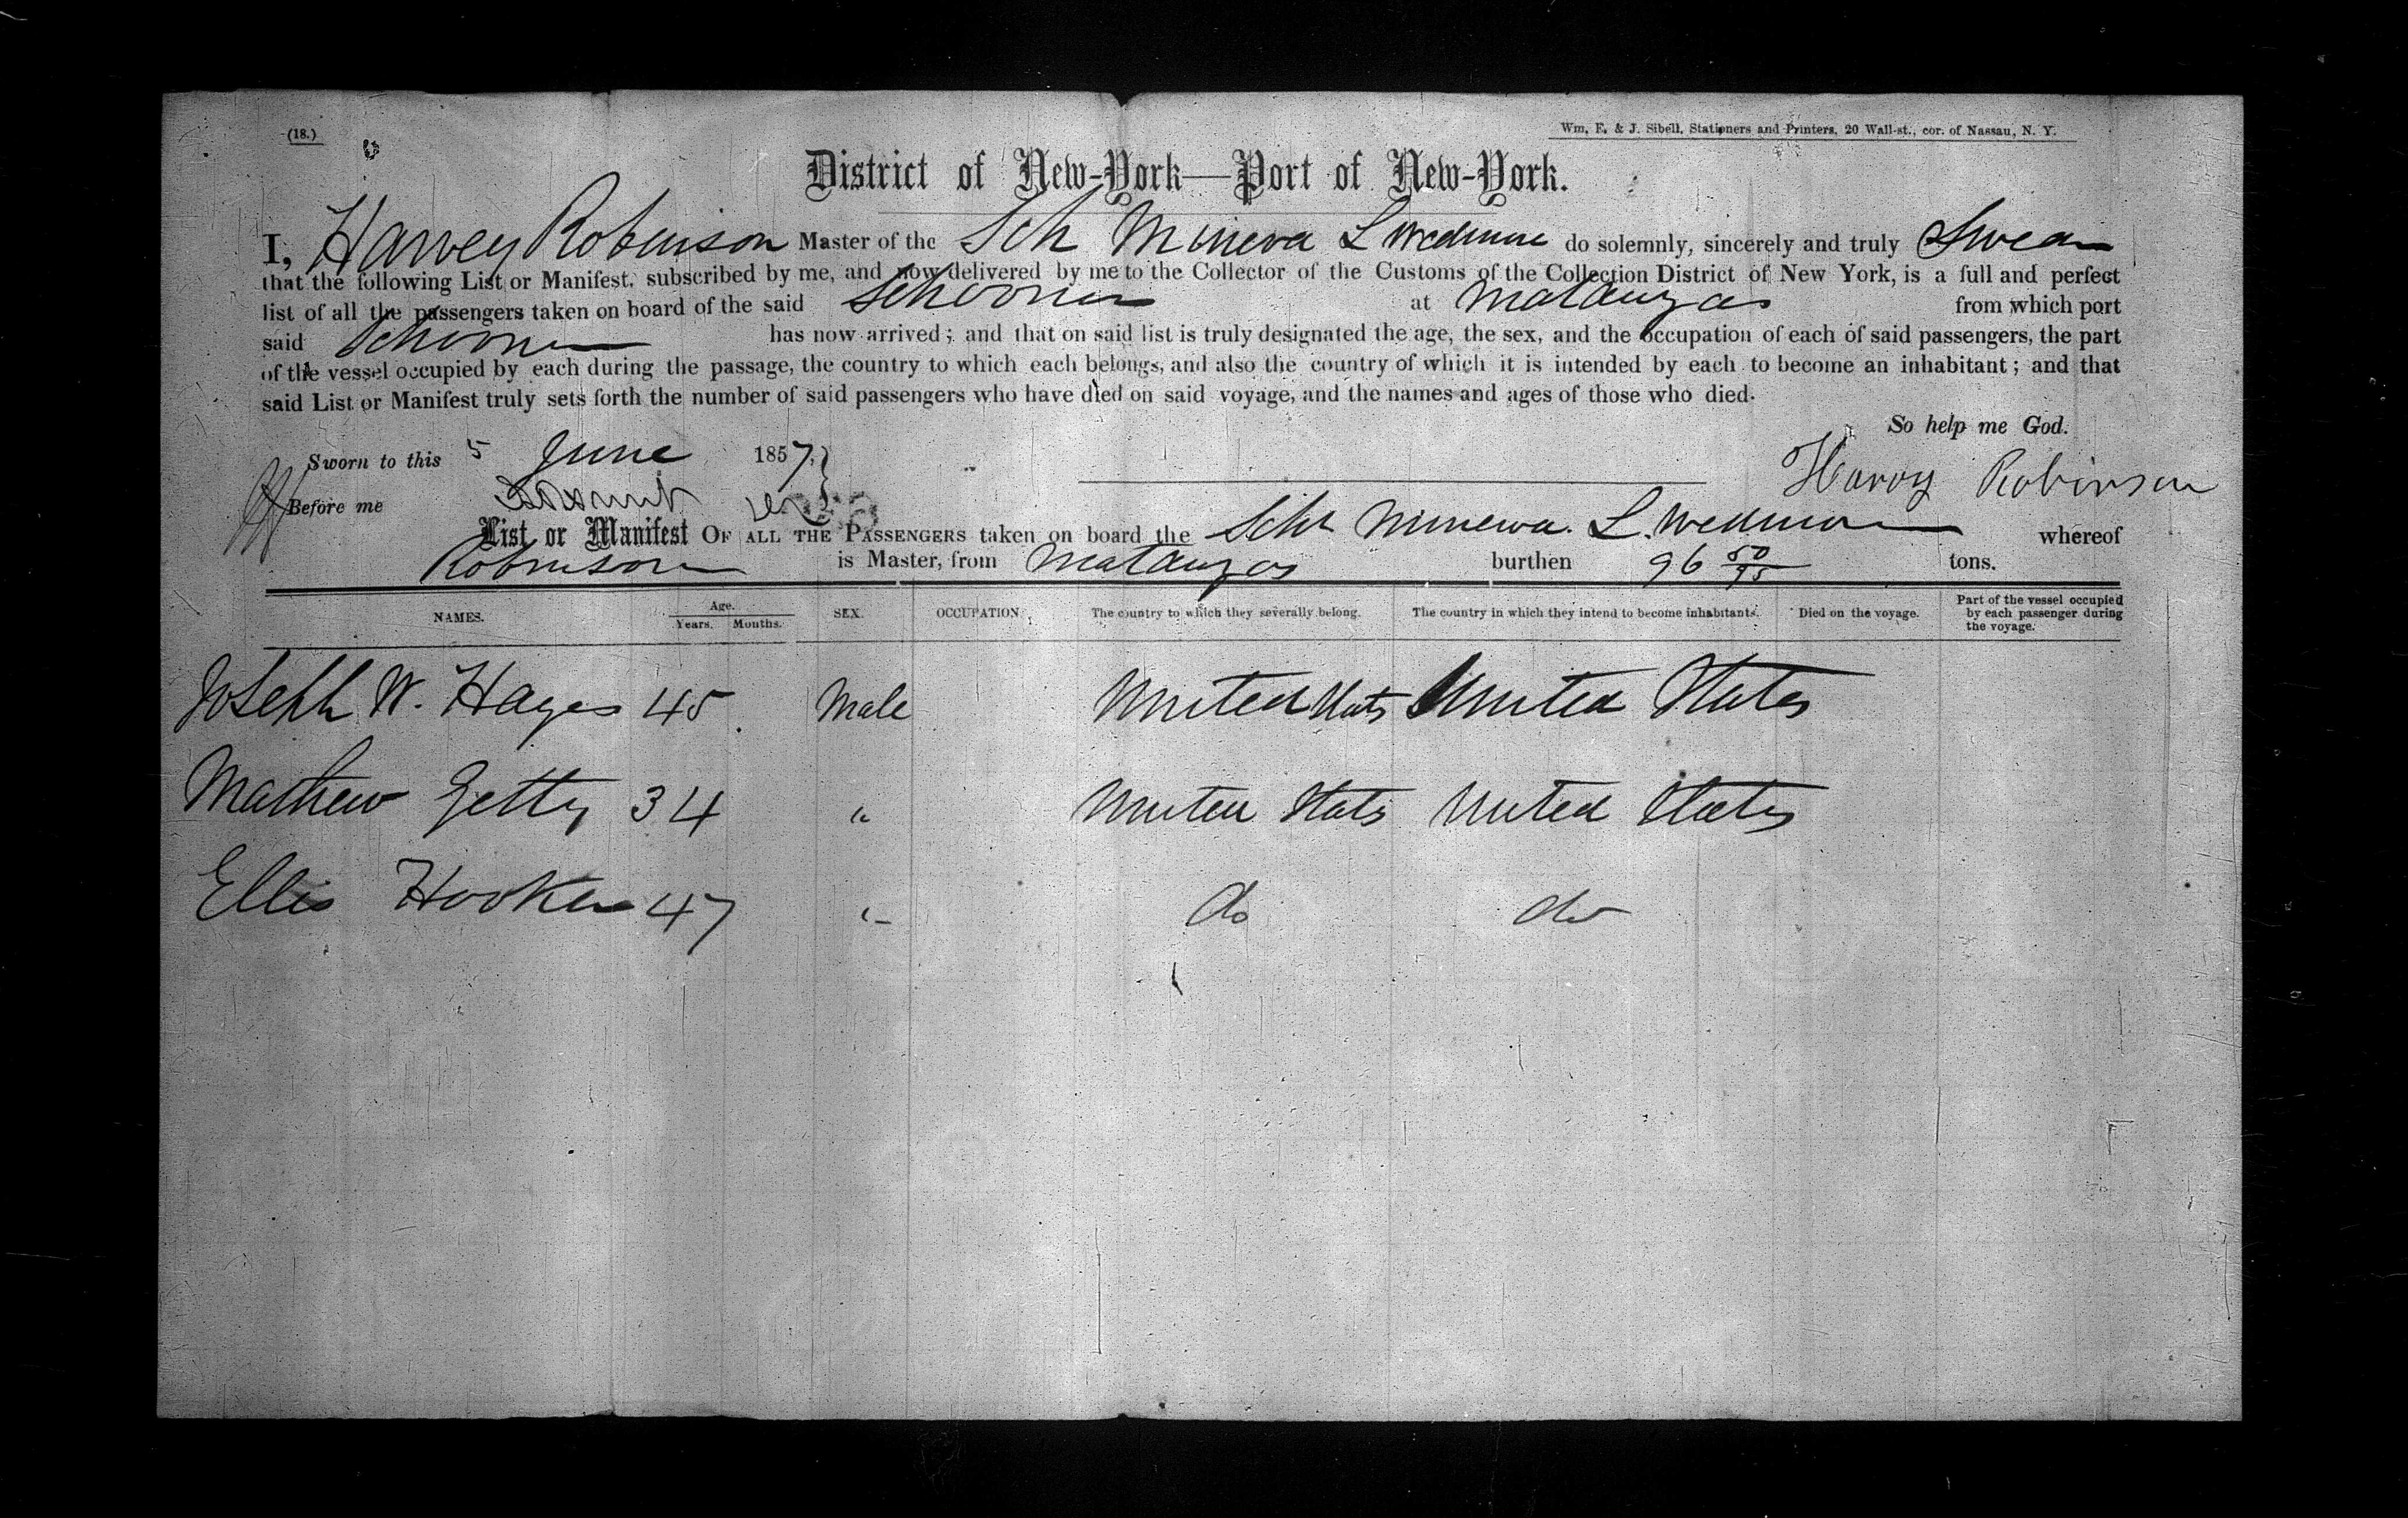 (18.)
Wm. E. & J. Sibell, Stationers and Printers, 20 Wall-st., cor. of Nassau, N. Y.
District of New-York—Port of New-York.
I, Harvey Robinson Master of the Sch Mineva L Wedmore do solemnly, sincerely and truly Swear
that the following List or Manifest, subscribed by me, and now delivered by me to the Collector of the Customs of the Collection District of New York, is a full and perfect
list of all the passengers taken on board of the said Schooner at Matanzas from which port
said Schooner has now arrived; and that on said list is truly designated the age, the sex, and the occupation of each of said passengers, the part
of the vessel occupied by each during the passage, the country to which each belongs, and also the country of which it is intended by each to become an inhabitant; and that
said List or Manifest truly sets forth the number of said passengers who have died on said voyage, and the names and ages of those who died.
So help me God.
Sworn to this 5 June 1857,
Harvy Robinson
Before me
List or Manifest OF ALL THE PASSENGERS taken on board the Schr Minerva L. Wedmore whereof
Robinson is Master, from Matanzas burthen 96 50/95 tons.
NAMES. Age. Years. Months. SEX. OCCUPATION. The country to which they severally belong. The country in which they intend to become inhabitants. Died on the voyage. Part of the vessel occupied by each passenger during the voyage.
Joseph W. Hayes 45. Male United Stats United States
Mathew Getty 34 " United Stats United States
Ellis Hooker 47 " do do